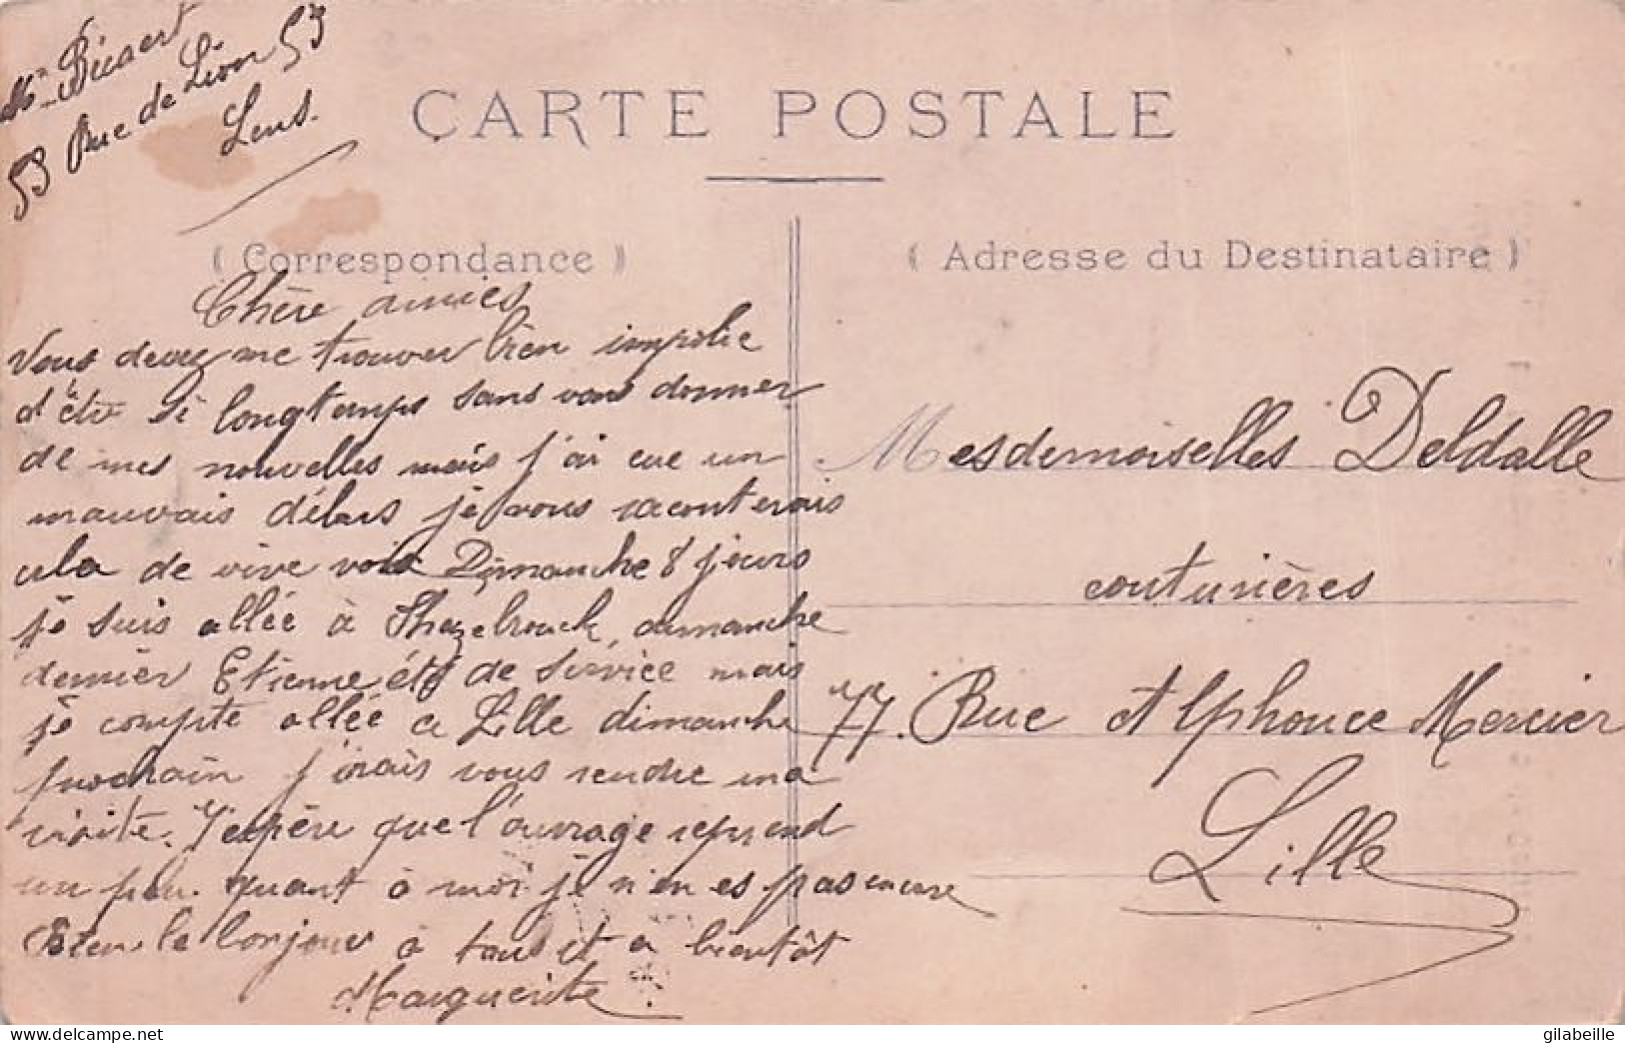 53 Rue de Lion 53
Lens.
CARTE POSTALE
( Correspondance )
( Adresse du Destinataire )
Chère amies
Vous devez me trouver bien impolie
d'être si longtemps sans vous donner
de mes nouvelles mais j'ai eue un
mauvais délais je vous raconterais
cela de vive voix Dimanche 8 jours
je suis allée à Hazebrouck, dimanche
dernier Etienne été de service mais
je compte allée a Lille dimanche
prochain j'irais vous rendre ma
visite. J'espère que l'ouvrage reprend
un peu. quant à moi je n'en es pas encore
Bien le bonjour à tous et a bientôt
Marguerite
Mesdemoiselles Deldalle
couturières
77. Rue Alphonce Mercier
Lille
gilabeille
delcampe.net